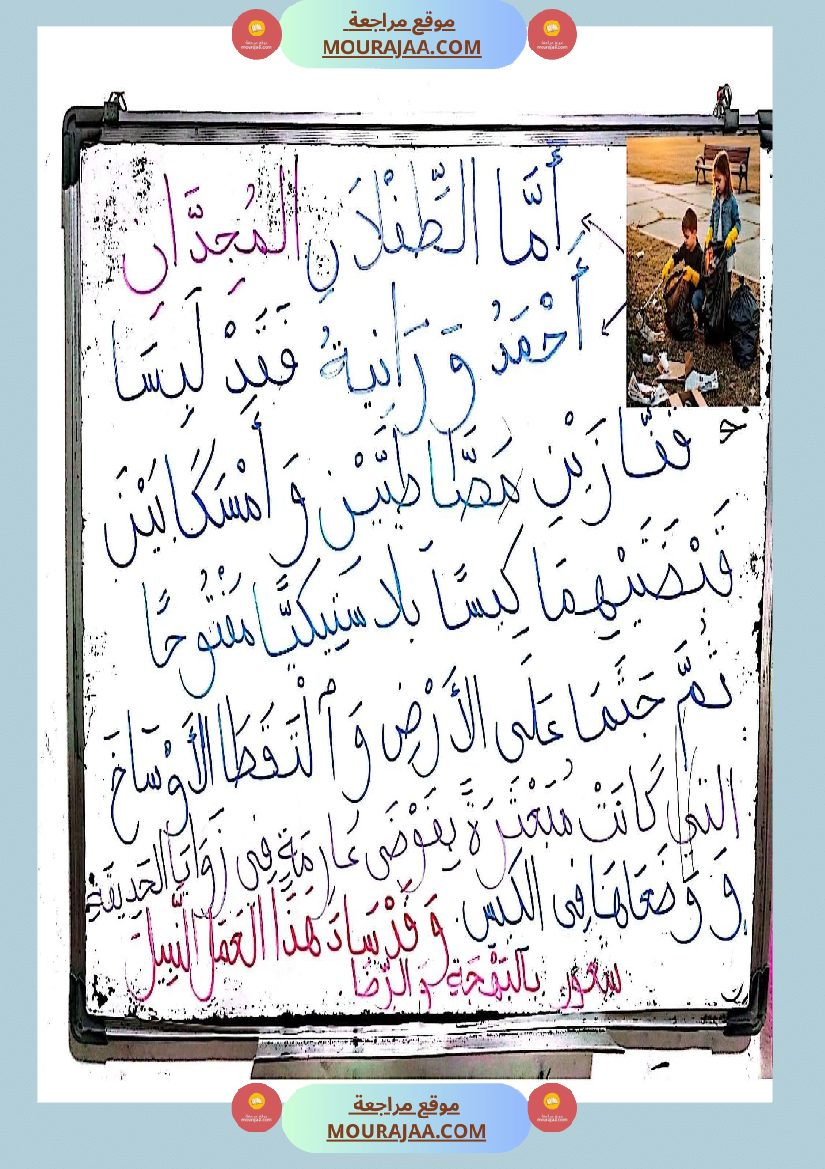 موقع مراجعة
MOURAJAA.COM
أَمَّا الطِّفْلَانِ المُجِدَّانِ
أَحْمَدُ وَ رَانِيةُ فَقَدْ لَبِسَا
قفّازَيْنِ مَطَّاطِيَّيْنِ وَ أَمْسَكَا بَيْنَ
قَبْضَتَيْهِمَا كِيسًا بَلاَسْتِيكِيًّا مَفْتُوحًا
ثُمَّ جَثَمَا عَلَى الأَرْضِ وَ الْتَقَطَا الأَوْسَاخَ
التي كَانَتْ مُبَعْثَرَةً بِفَوْضَى عَارِمَةٍ فِي زَوَايَا الحَدِيقَةِ
وَ وَضَعَاهَا فِي الكِيسِ وَ قَدْ سَادَ هَذَا العَمَلَ النَّبِيلَ
شعور بالبَهْجَةِ وَ الرِّضَا
موقع مراجعة
MOURAJAA.COM